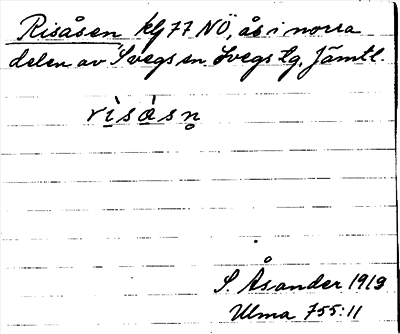 Risåsen kbl 77 NÖ, ås i norra
delen av Svegs sn. Svegs tg. Jämtl.
rìsàsn̥
S. Åsander 1919
Ulma 755:11